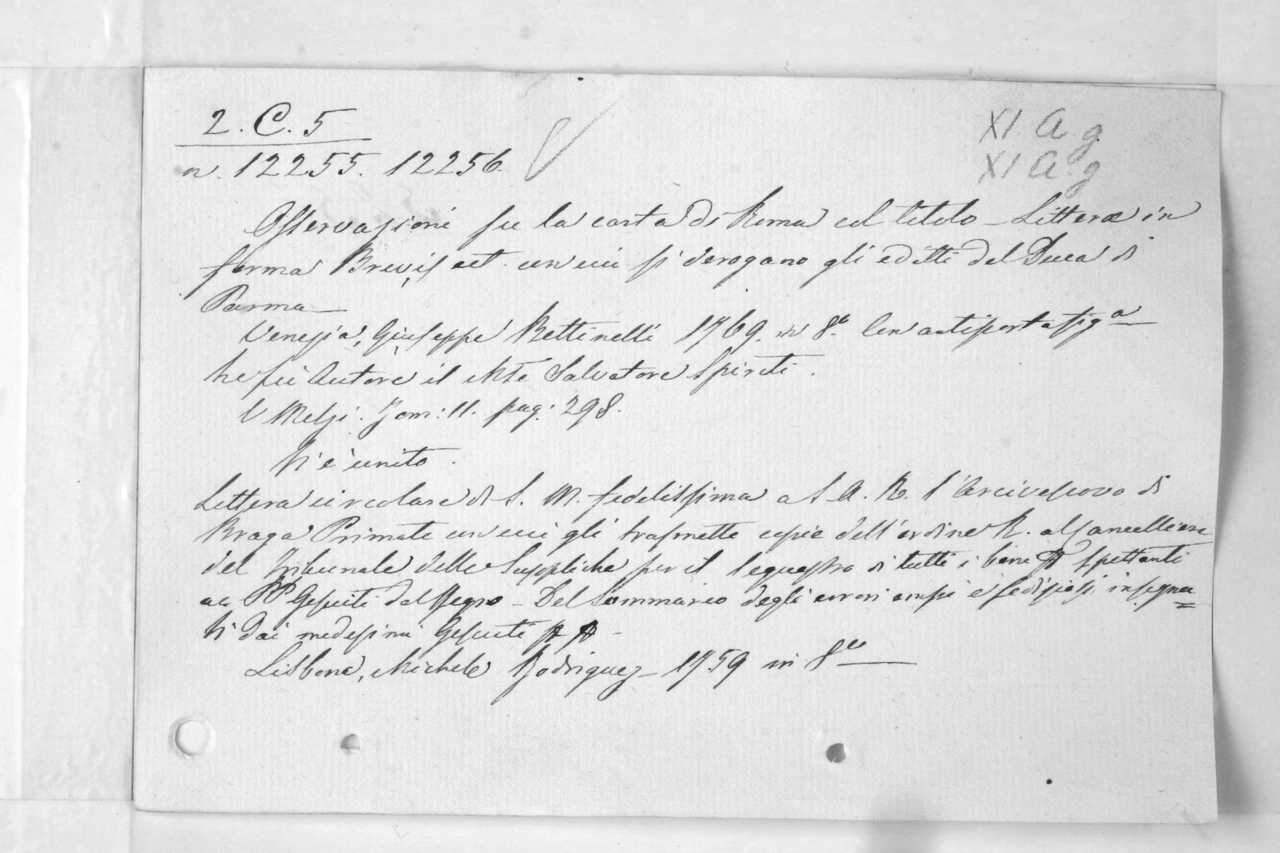 2. C. 5
XI. A. g
n. 12255. 12256.
XI A. g
Osservazioni su la carta di Roma col titolo - Litteræ in
forma Brevis ect. con cui si derogano gli editti del Duca di
Parma
Venezia, Giuseppe Bettinelli 1769. in 8.º Con antiporta fig.ª
Ne fu Autore il Mse Salvatore Spiriti.
V. Melzi. Tom: II. pag: 298.
Vi è unito.
Lettera circolare di S. M. fedelissima a S. A. R. l'Arcivescovo di
Braga Primate con cui gli trasmette copie dell'ordine R. al Cancelliere
del Tribunale delle Suppliche per il sequestro di tutti i beni spettanti
ai PP. Gesuiti del Regno - Del Sommario degli errori empi e sediziosi insegna=
ti dai medesimi Gesuiti
Lisbona, Michele Rodriguez - 1759 in 8º